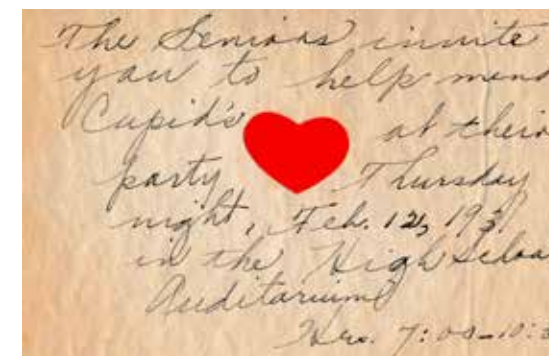 The Seniors invite
you to help mend
Cupid's at their
party Thursday
night, Feb. 12, 193
in the High Schoo
Auditarium
Hrs. 7:00-10: